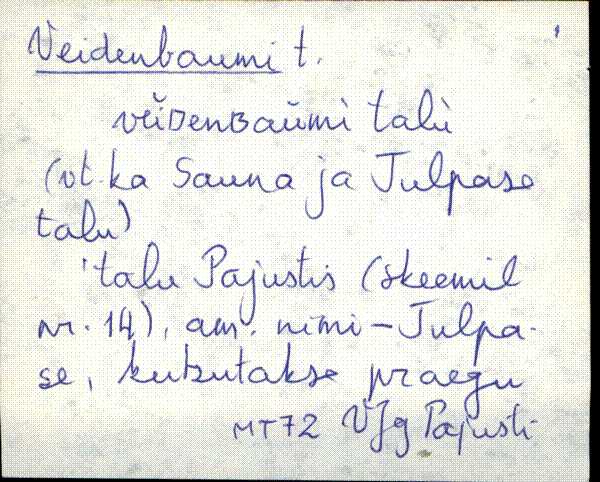 Veidenbaumi t.
vèiᴅenʙaùmi talù
(vt. ka Sauna ja Tulpase
talu)
'talu Pajustis (skeemil
nr. 14), am. nimi – Tulpa-
se, kutsutakse praegu
MT72 VJg Pajusti